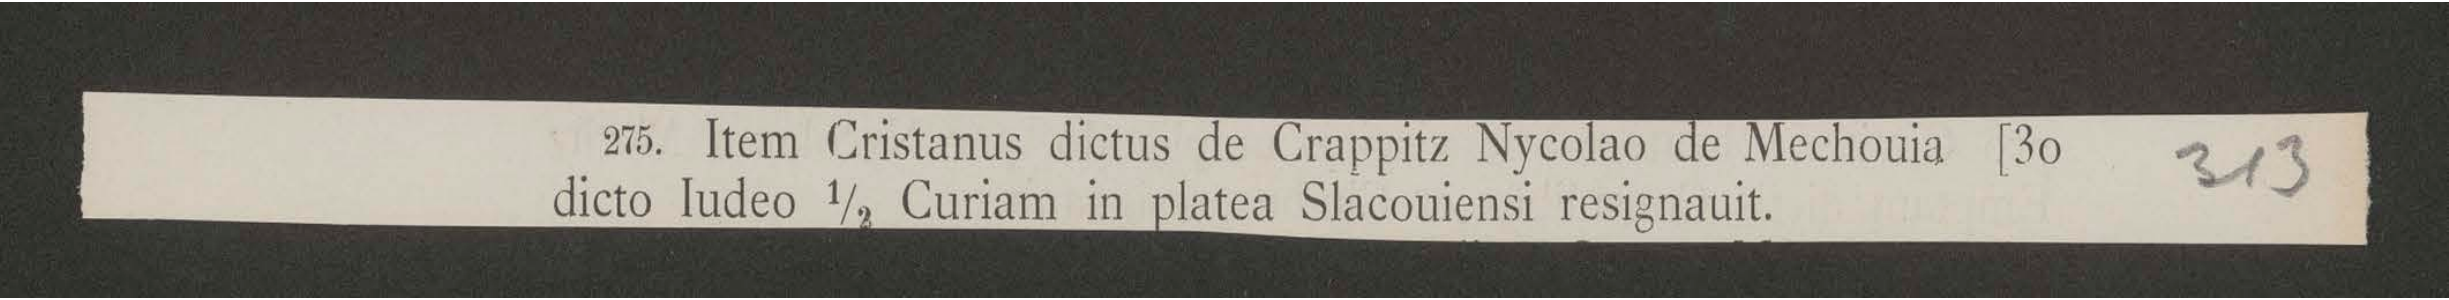 275. Item Cristanus dictus de Crappitz Nycolao de Mechouia [30
dicto Iudeo 1/2 Curiam in platea Slacouiensi resignauit.
313